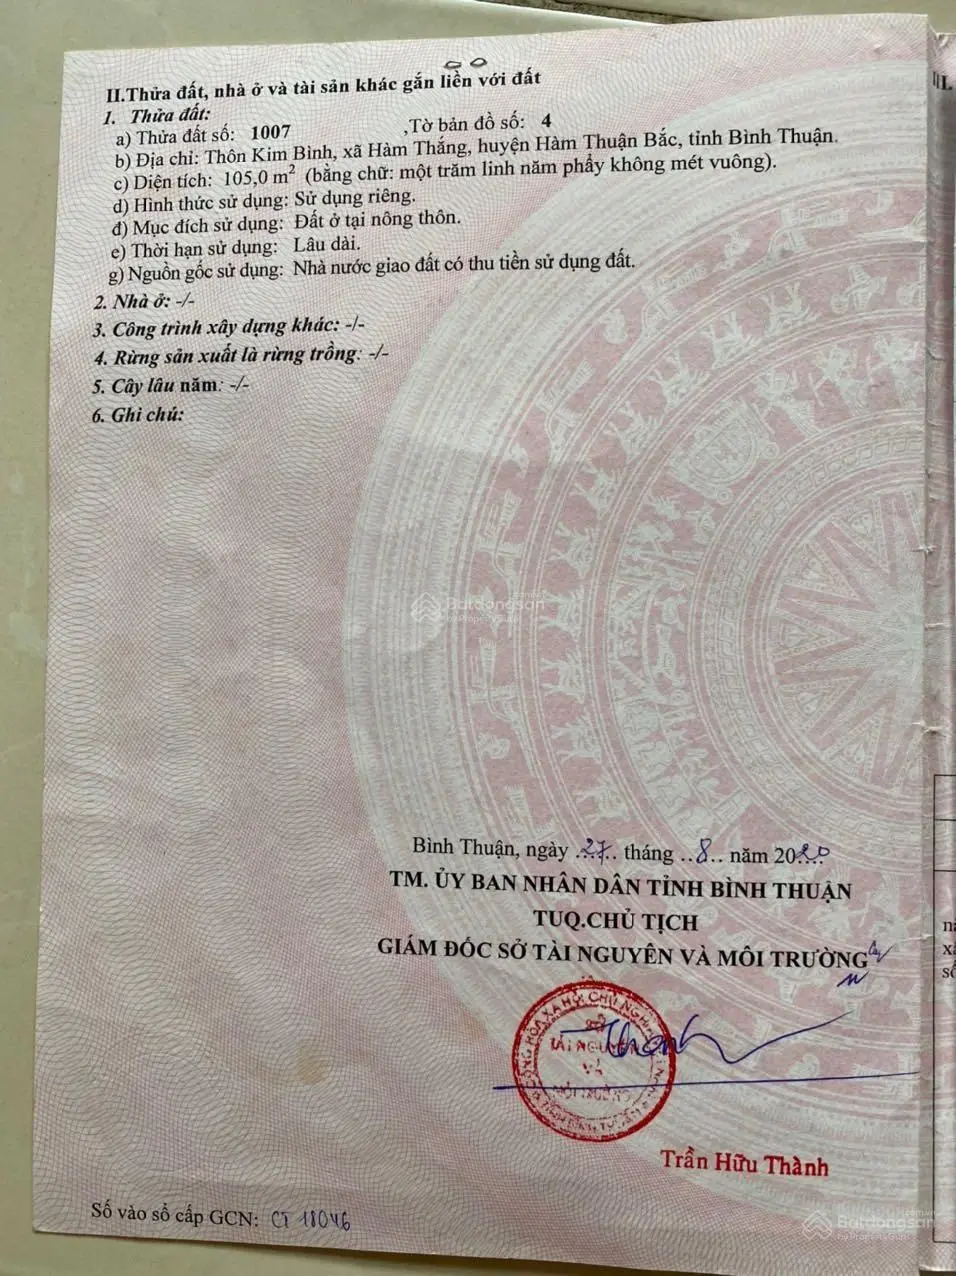 II.Thửa đất, nhà ở và tài sản khác gắn liền với đất
1. Thửa đất:
a) Thửa đất số: 1007 ,Tờ bản đồ số: 4
b) Địa chỉ: Thôn Kim Bình, xã Hàm Thắng, huyện Hàm Thuận Bắc, tỉnh Bình Thuận.
c) Diện tích: 105,0 m² (bằng chữ: một trăm linh năm phẩy không mét vuông).
d) Hình thức sử dụng: Sử dụng riêng.
đ) Mục đích sử dụng: Đất ở tại nông thôn.
e) Thời hạn sử dụng: Lâu dài.
g) Nguồn gốc sử dụng: Nhà nước giao đất có thu tiền sử dụng đất.
2. Nhà ở: -/-
3. Công trình xây dựng khác: -/-
4. Rừng sản xuất là rừng trồng: -/-
5. Cây lâu năm: -/-
6. Ghi chú:
Batdongsan.com.vn
by PropertyGuru
Bình Thuận, ngày 27 tháng 8 năm 2020
TM. ỦY BAN NHÂN DÂN TỈNH BÌNH THUẬN
TUQ.CHỦ TỊCH
GIÁM ĐỐC SỞ TÀI NGUYÊN VÀ MÔI TRƯỜNG
CỘNG HÒA XÃ HỘI CHỦ NGHĨA
SỞ
TÀI NGUYÊN
VÀ
MÔI TRƯỜNG
TỈNH BÌNH THUẬN
Trần Hữu Thành
Số vào sổ cấp GCN: CT 18046
Batdongsan.com.vn
by PropertyGuru